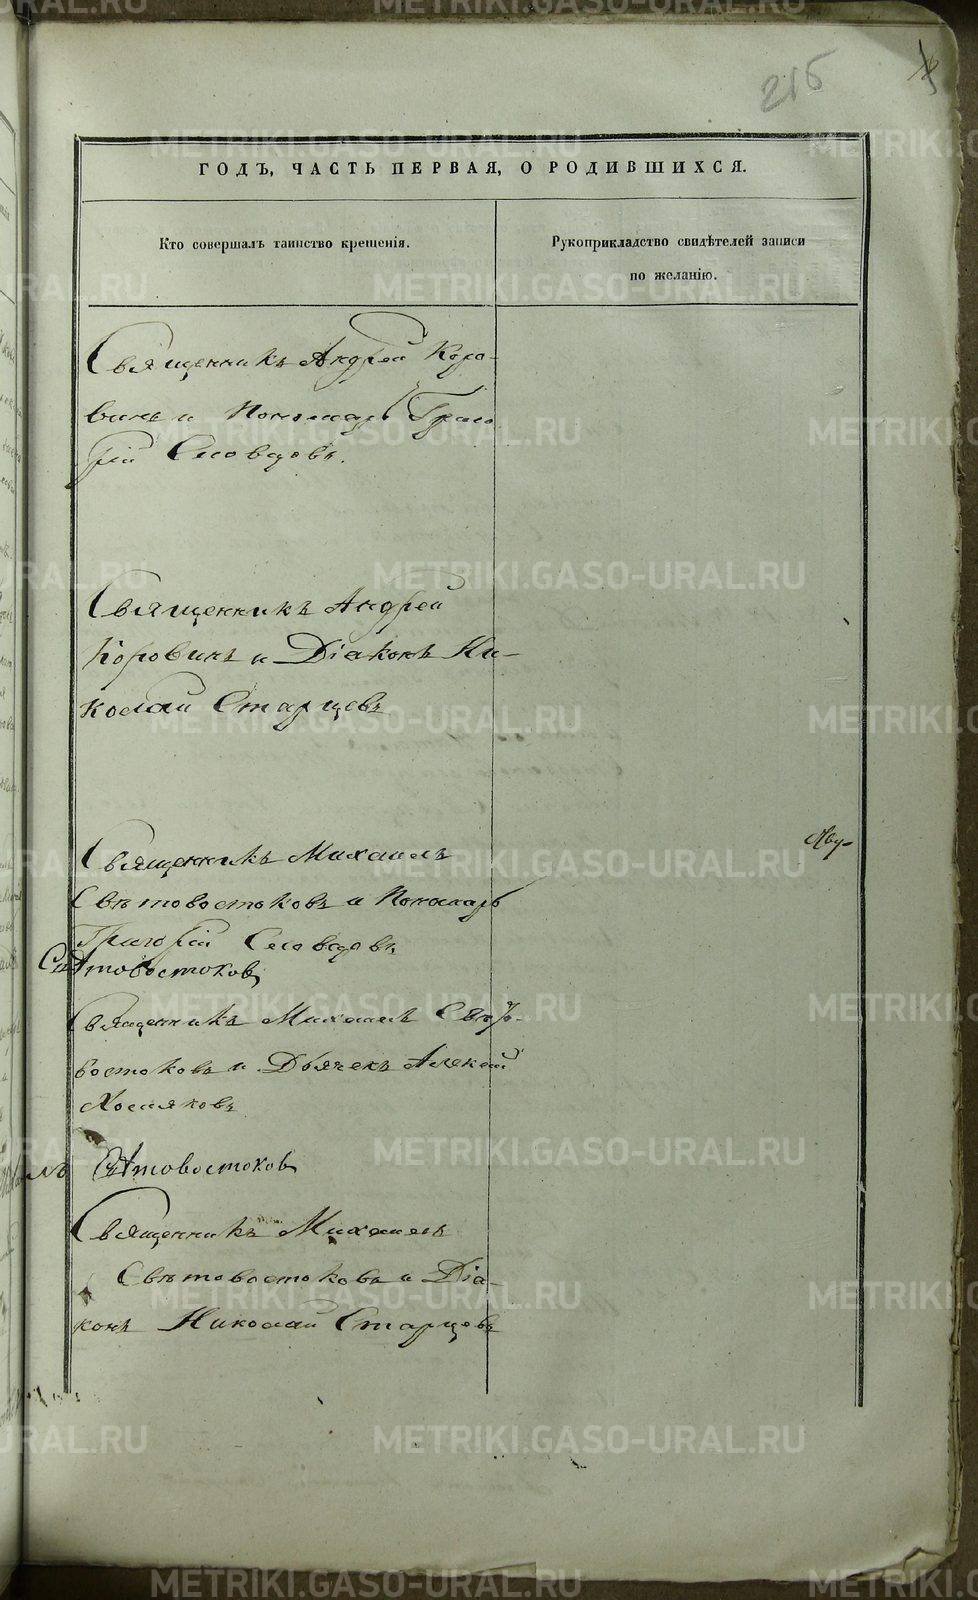 215
ГОДЪ, ЧАСТЬ ПЕРВАЯ, О РОДИВШИХСЯ.
Кто совершалъ таинство крещенія.
Рукоприкладство свидѣтелей записи
по желанію.
Священникъ Андрей Коро-
винъ и Пономарь Григо
рій Словцовъ.
Священникъ Андрей
Коровинъ и Діаконъ Ни-
колай Старцевъ
Священникъ Михаилъ
Свѣтовостоковъ и Пономарь
Григорій Словцовъ
Свѣтовостоковъ
Священникъ Михаилъ Свѣто-
востоковъ и Дьячекъ Алексѣй
Хомяковъ
Свѣтовостоковъ
Священникъ Михаилъ
Свѣтовостоковъ и Діа-
конъ Николай Старцевъ
METRIKI.GASO-URAL.RU